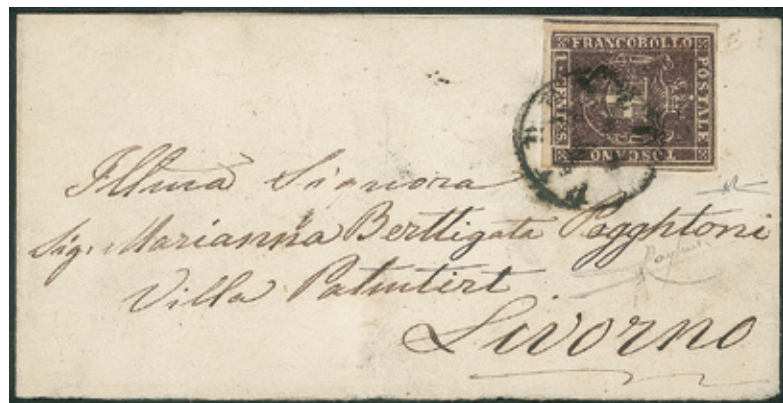 FRANCOBOLLO
POSTALE
TOSCANO
Illma Signora
Sig. Marianna Berttigata Pagghtoni
Villa Patuttirt
Livorno